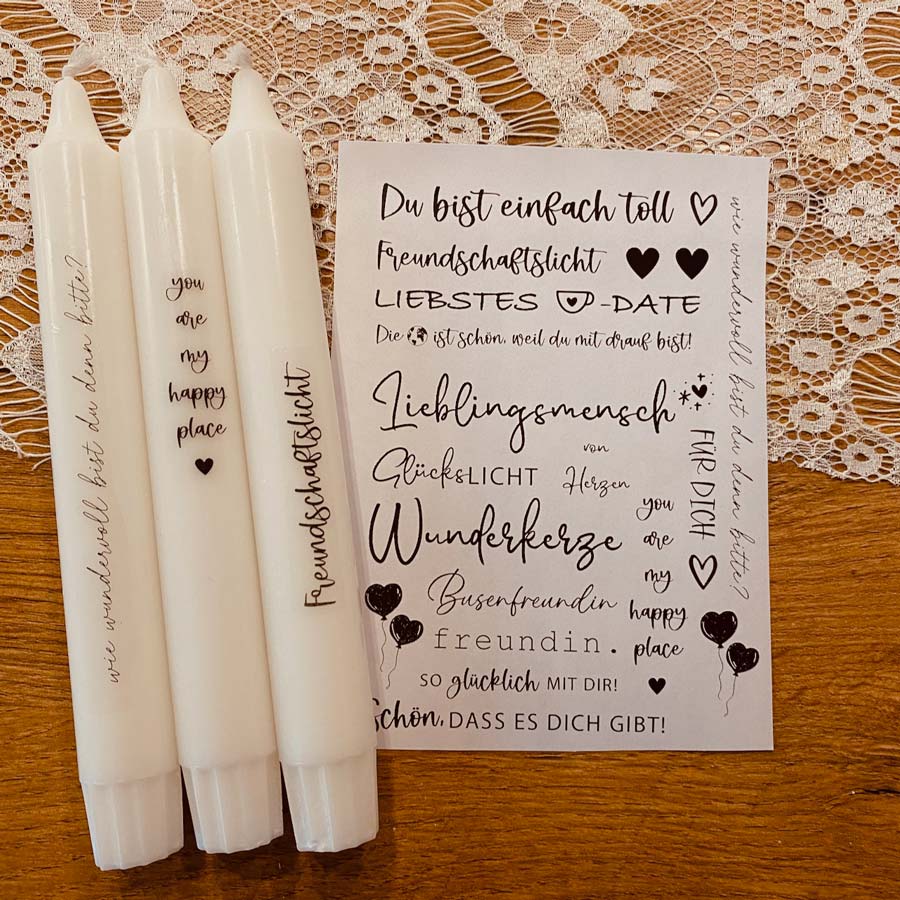 wie wundervoll bist du denn bitte?
you
are
my
happy
place
Freundschaftslicht
Du bist einfach toll
Freundschaftslicht
LIEBSTES -DATE
Die ist schön, weil du mit drauf bist!
Lieblingsmensch
von
Herzen
GlücksLICHT
Wunderkerze
Busenfreundin
freundin.
so glücklich MIT DIR!
Schön, DASS ES DICH GIBT!
you
are
my
happy
place
FÜR DICH
wie wundervoll bist du denn bitte?